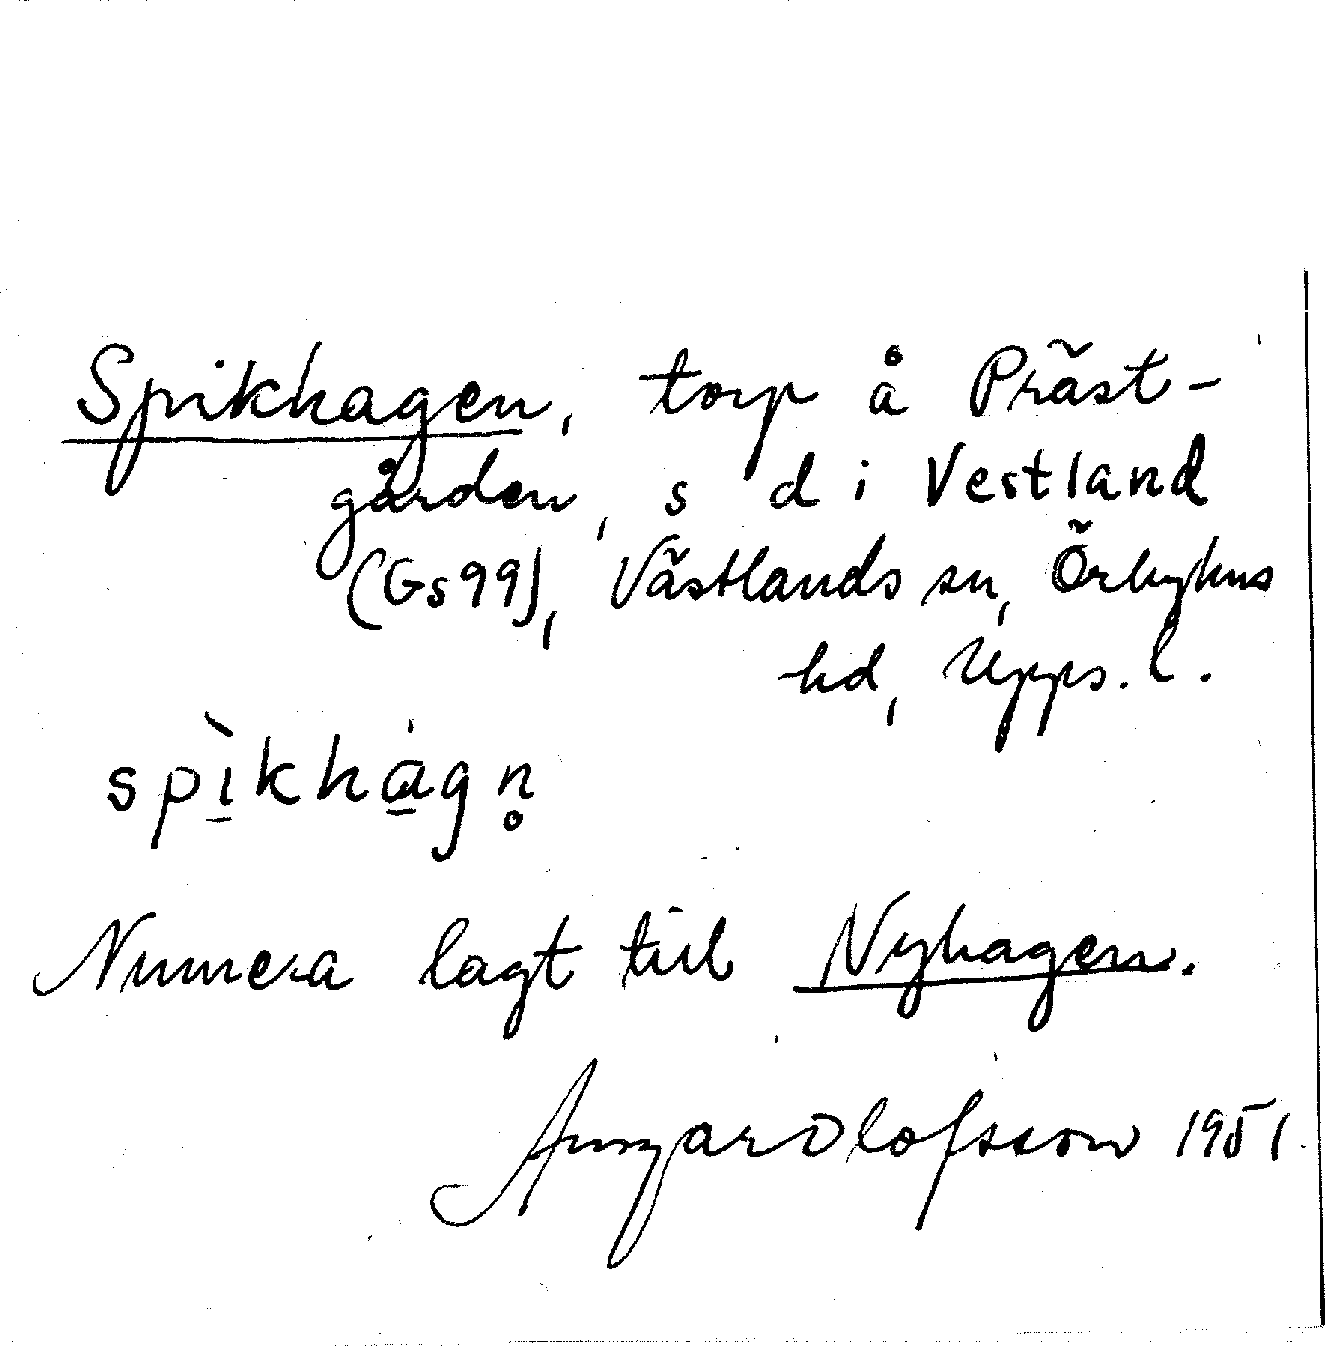 Spikhagen, torp å Präst-
gården, s d i Vestland
(Gs99), Västlands sn, Örbyhus
hd, Upps. l.
spı̀khȧgn̥
Numera lagt till Nyhagen.
Ansgar Olofsson 1951